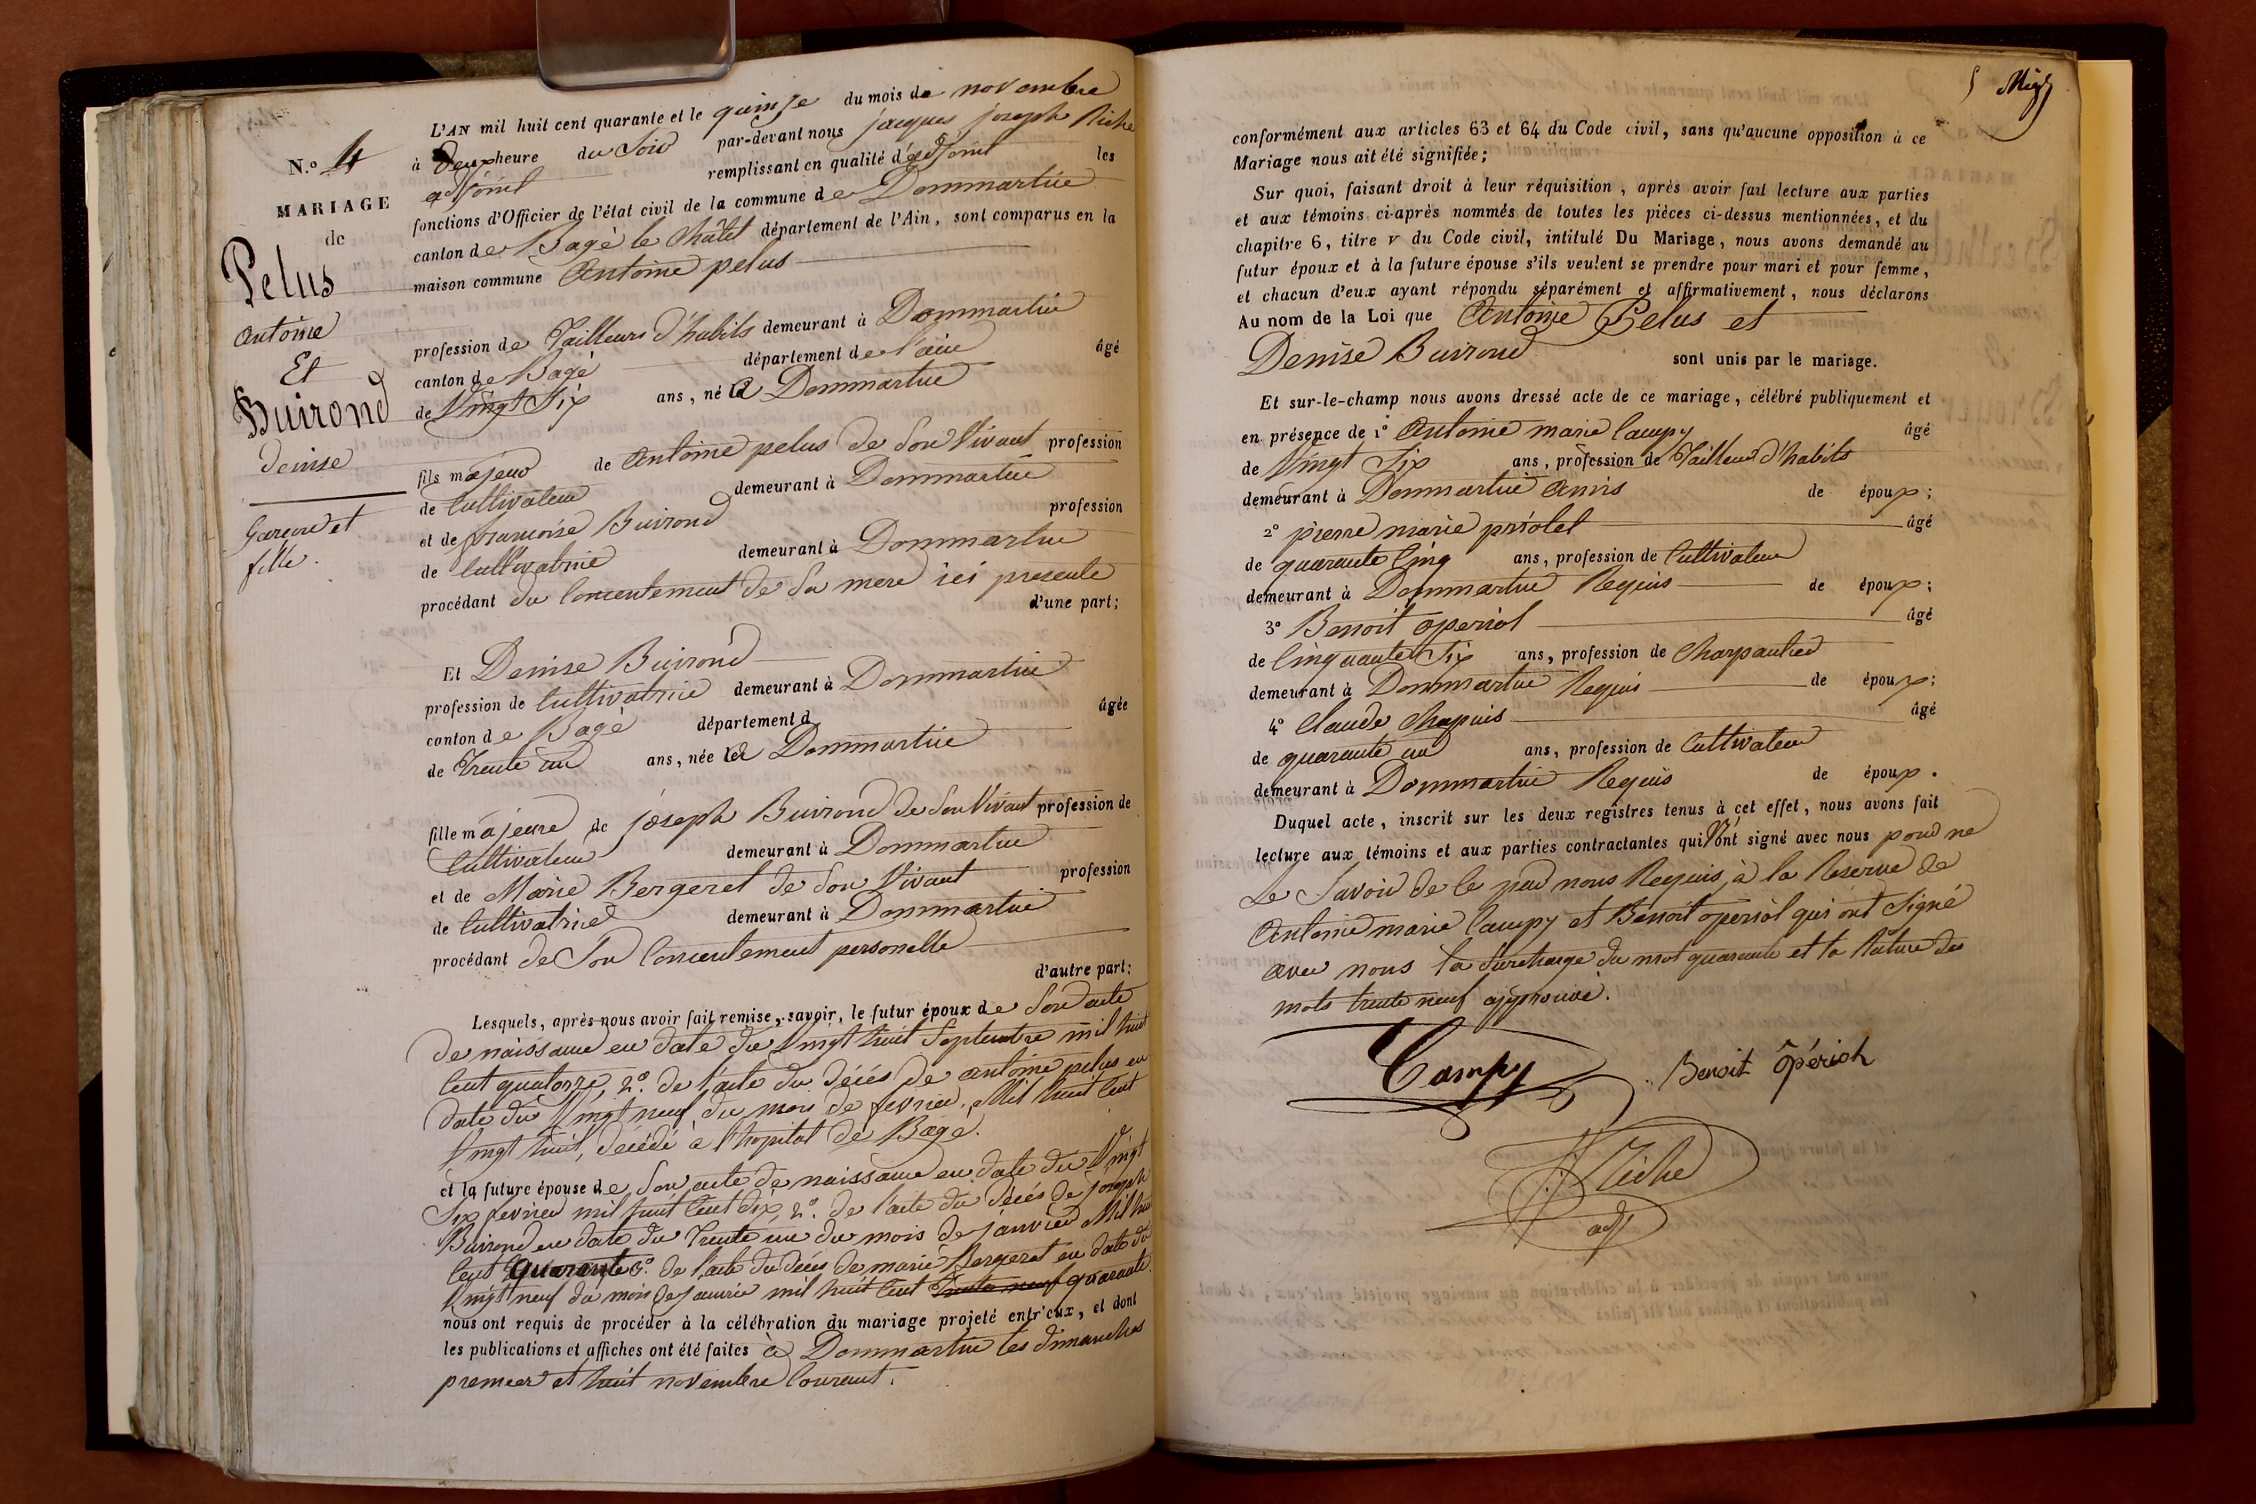 N.º 4
MARIAGE
de
Pelus
antoine
Et
Buirond
denise
Garcon et
fille.
L'AN mil huit cent quarante et le quinze du mois de novembre
à deux heure du Soir par-devant nous jacques joseph Riche
adjoint remplissant en qualité d'adjoint les
fonctions d'Officier de l'état civil de la commune de Dommartin
canton de Bagé le Châtel département de l'Ain, sont comparus en la
maison commune Antoine pelus
profession de Tailleur d'habits demeurant à Dommartin
canton de Bagé département de l'ain âgé
de Vingt Six ans, né à Dommartin
fils majeur de Antoine pelus de Son Vivant profession
de Cultivateur demeurant à Dommartin
et de francoise Buirond profession
de Cultivatrice demeurant à Dommartin
procédant du Consentement de Sa mere ici presente
d'une part;
Et Denise Buirond
profession de Cultivatrice demeurant à Dommartin
canton de Bagé département d âgée
de Trente un ans, née à Dommartin
fille majeure de joseph Buirond de Son Vivant profession de
Cultivateur demeurant à Dommartin
et de Marie Bergeret de Son Vivant profession
de Cultivatrice demeurant à Dommartin
procédant de Son Consentement personelle
d'autre part;
Lesquels, après nous avoir fait remise, savoir, le futur époux de Son acte
de naissance en date du Vingt huit Septembre mil huit
Cent quatorze, 2º. de l'acte du décés de antoine pelus en
date du Vingt neuf du mois de fevrier Mil huit Cent
Vingt huit, décédé à l'hopital de Bagé.
et la future épouse de Son acte de naissance en date du Vingt
Six fevrier mil huit Cent dix, 2º. de l'acte du décés de joseph
Buirond en date du Trente un du mois de janvier Mil huit
Cent Quarante 3º. de l'acte du décés de marie Bergeret en date du
Vingt neuf du mois de janvier mil huit Cent trente neuf quarante.
nous ont requis de procéder à la célébration du mariage projeté entr'eux, et dont
les publications et affiches ont été faites à Dommartin les dimanches
premier et huit novembre Courant.
5
conformément aux articles 63 et 64 du Code civil, sans qu'aucune opposition à ce
Mariage nous ait été signifiée;
Sur quoi, faisant droit à leur réquisition, après avoir fait lecture aux parties
et aux témoins ci-après nommés de toutes les pièces ci-dessus mentionnées, et du
chapitre 6, titre v du Code civil, intitulé Du Mariage, nous avons demandé au
futur époux et à la future épouse s'ils veulent se prendre pour mari et pour femme,
et chacun d'eux ayant répondu séparément et affirmativement, nous déclarons
Au nom de la Loi que Antoine Pelus et
Denise Buirond sont unis par le mariage.
Et sur-le-champ nous avons dressé acte de ce mariage, célébré publiquement et
en présence de 1º Antoine marie Campy âgé
de Vingt Six ans, profession de Tailleur d'habits
demeurant à Dommartin Amis de époux;
2º pierre marie priolet âgé
de quarante Cinq ans, profession de Cultivateur
demeurant à Dommartin Requis de époux;
3º Benoit operiol âgé
de Cinquante Six ans, profession de Charpantier
demeurant à Dommartin Requis de époux;
4º Claude Chapuis âgé
de quarante un ans, profession de Cultivateur
demeurant à Dommartin Requis de époux.
Duquel acte, inscrit sur les deux registres tenus à cet effet, nous avons fait
lecture aux témoins et aux parties contractantes qui N'ont signé avec nous pour ne
Le Savoir de Ce par nous Requis, à la Reserve de
Antoine marie Campy et Benoit operiol qui ont Signé
avec nous la Surcharge du mot quarante et la Rature des
mots trente neuf approuvé.
Campy
Benoit Opériol
JJ Riche
adj